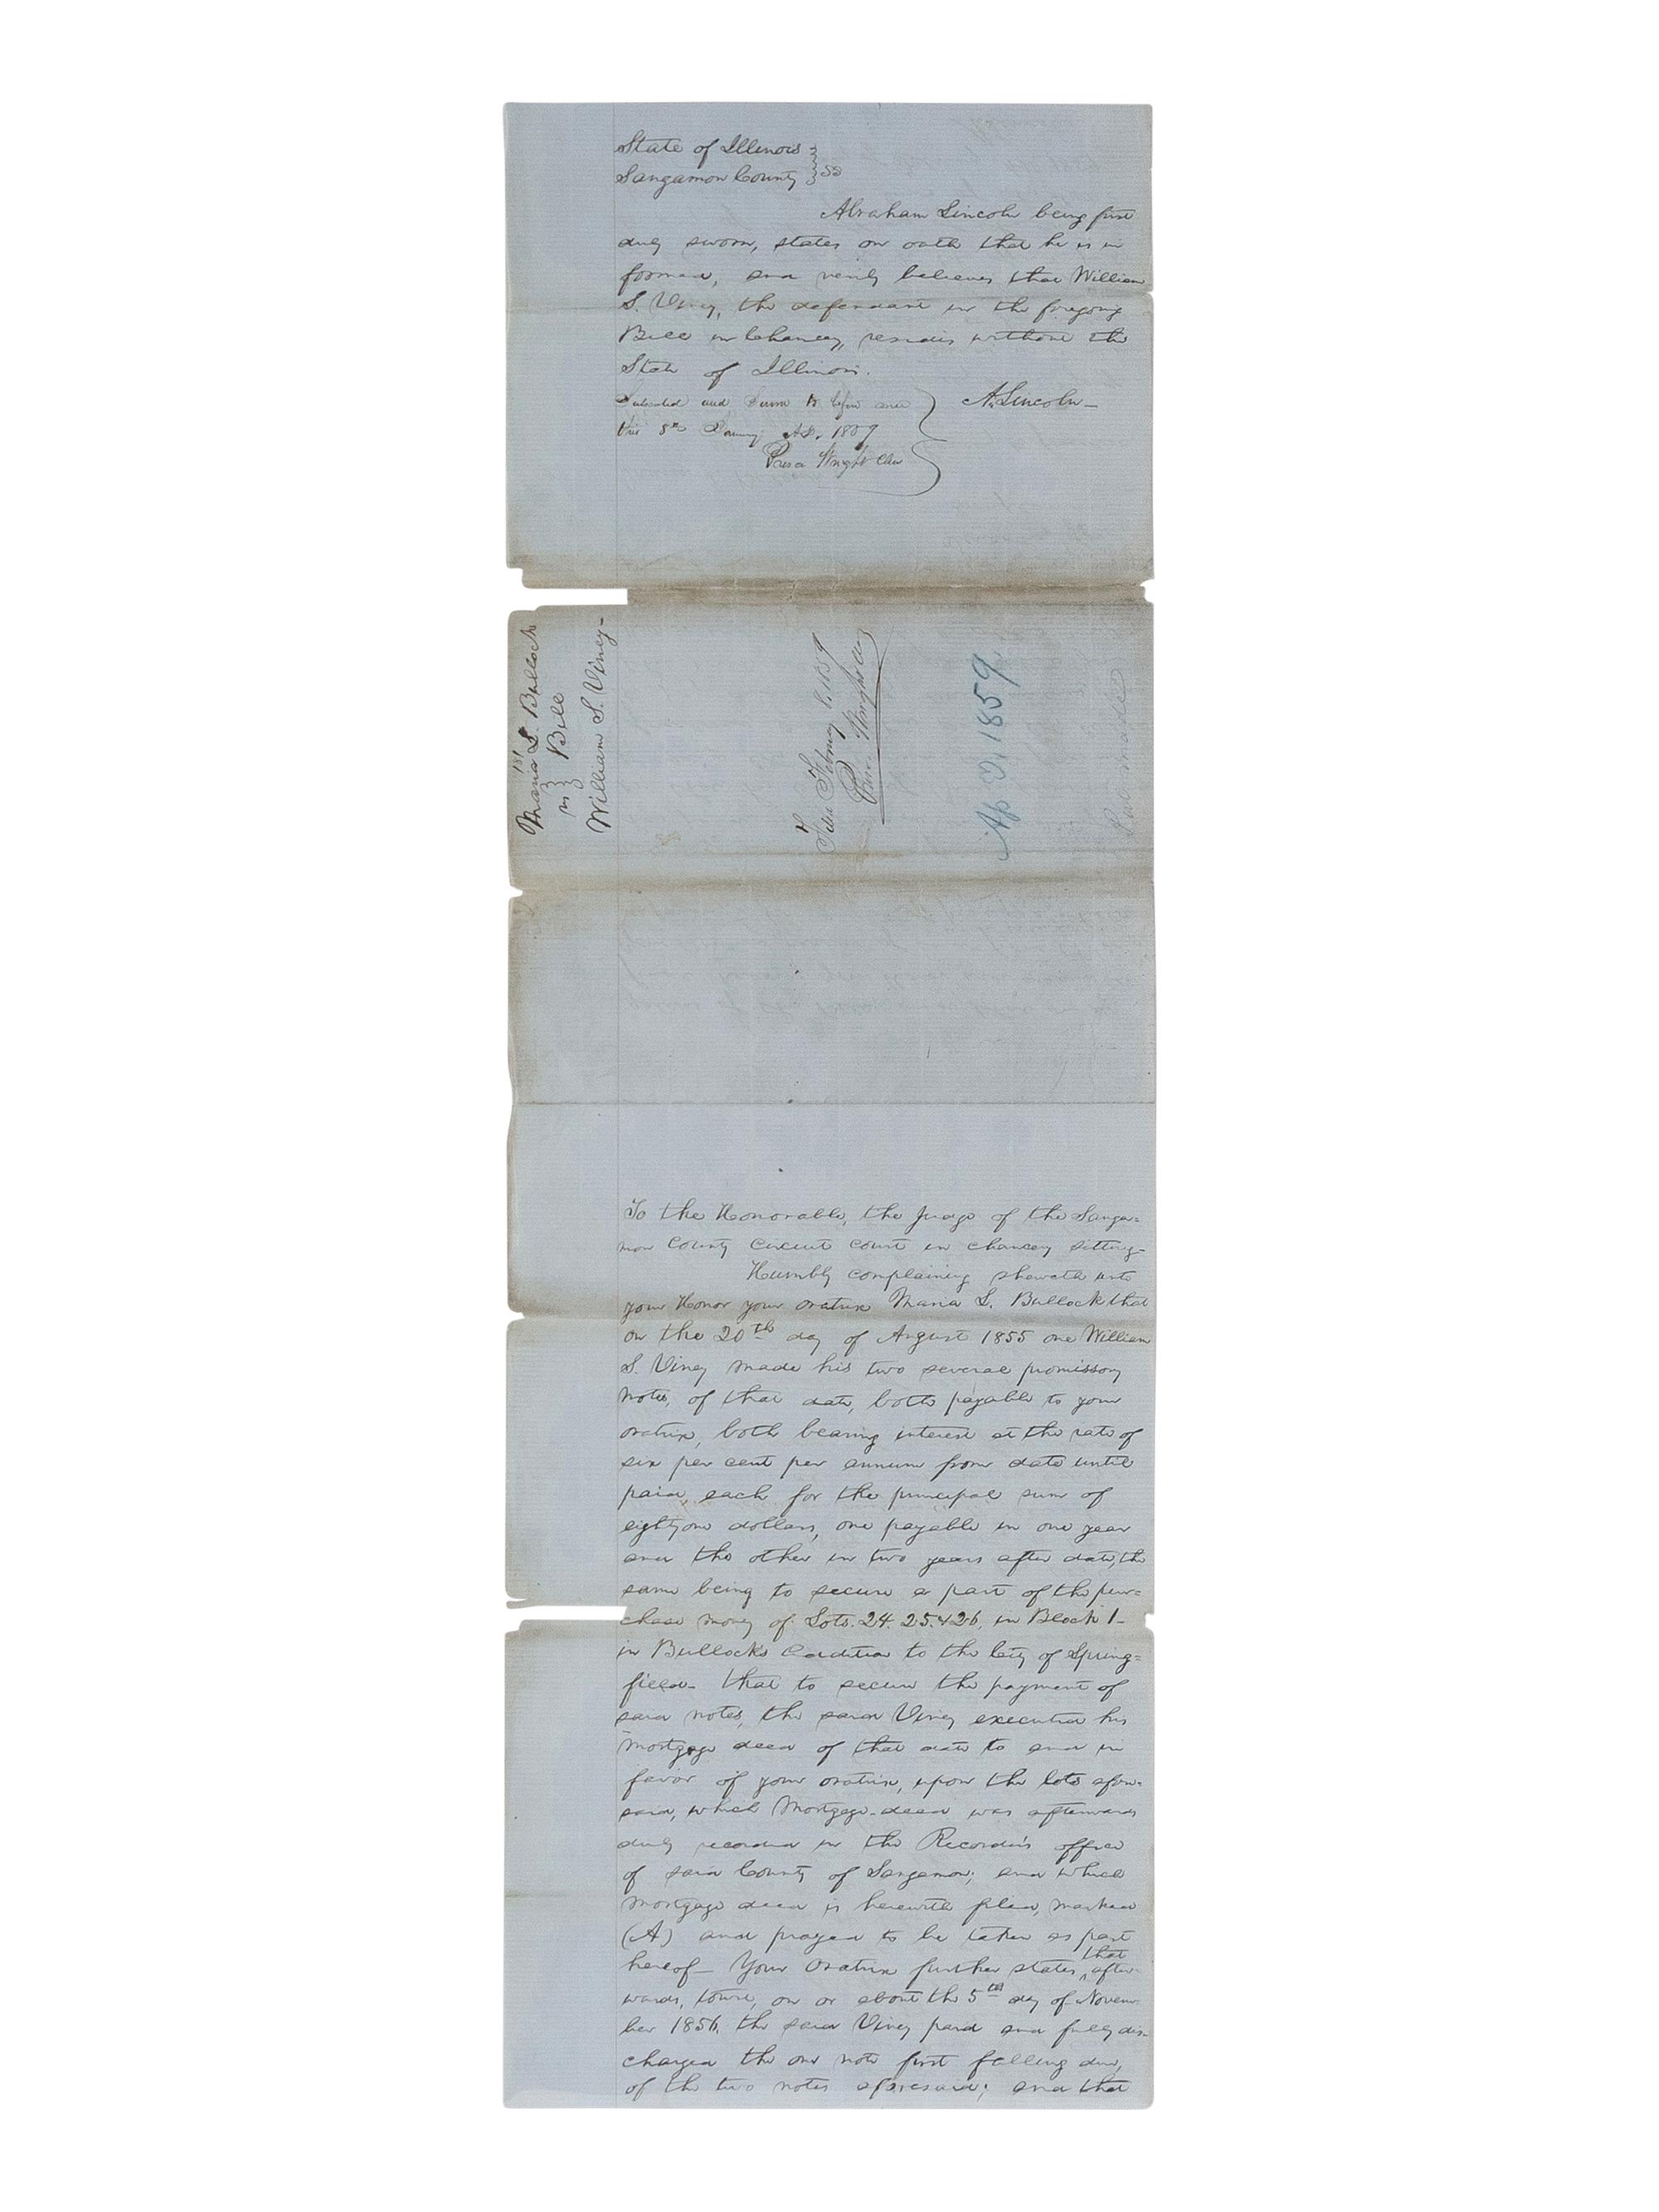 State of Illinois
Sangamon County } SS
Abraham Lincoln being first
duly sworn, states on oath that he is in
formed, and verily believes that William
S. Viney, the defendant in the foregoing
Bill in Chancery, resides without the
State of Illinois.
A. Lincoln
Subscribed and Sworn to before me
this 8th AD. 1859
Presco Wright Clk
Maria L. Bullock
vs } Bill
William S. Viney
Filed February 8, 1859
Presco Wright Clk
1859
To the Honorable, the Judge of the Sanga=
mon County Circuit Court in chancery sitting-
Humbly complaining sheweth unto
your Honor your oratrix Maria L. Bullock that
on the 20th day of August 1855 one William
S. Viney made his two several promissory
notes, of that date, both payable to your
oratrix, both bearing interest at the rate of
six per cent per annum from date until
paid, each for the principal sum of
eightyone dollars, one payable in one year
and the other in two years after date, the
same being to secure a part of the pur=
chase money of Lots. 24. 25. & 26, in Block 1-
in Bullock's addition to the City of Spring=
field- that to secure the payment of
said notes, the said Viney executed his
mortgage deed of that date to and in
favor of your oratrix, upon the lots afore-
said, which mortgage-deed was afterwards
duly recorded in the Recorder's office
of said County of Sangamon; and which
mortgage deed is herewith filed, marked
(A) and prayed to be taken as part
hereof- Your Oratrix further states, that after-
wards, towit, on or about the 5th day of Novem-
ber 1856, the said Viney paid and fully dis-
charged the one note first falling due,
of the two notes aforesaid; and that